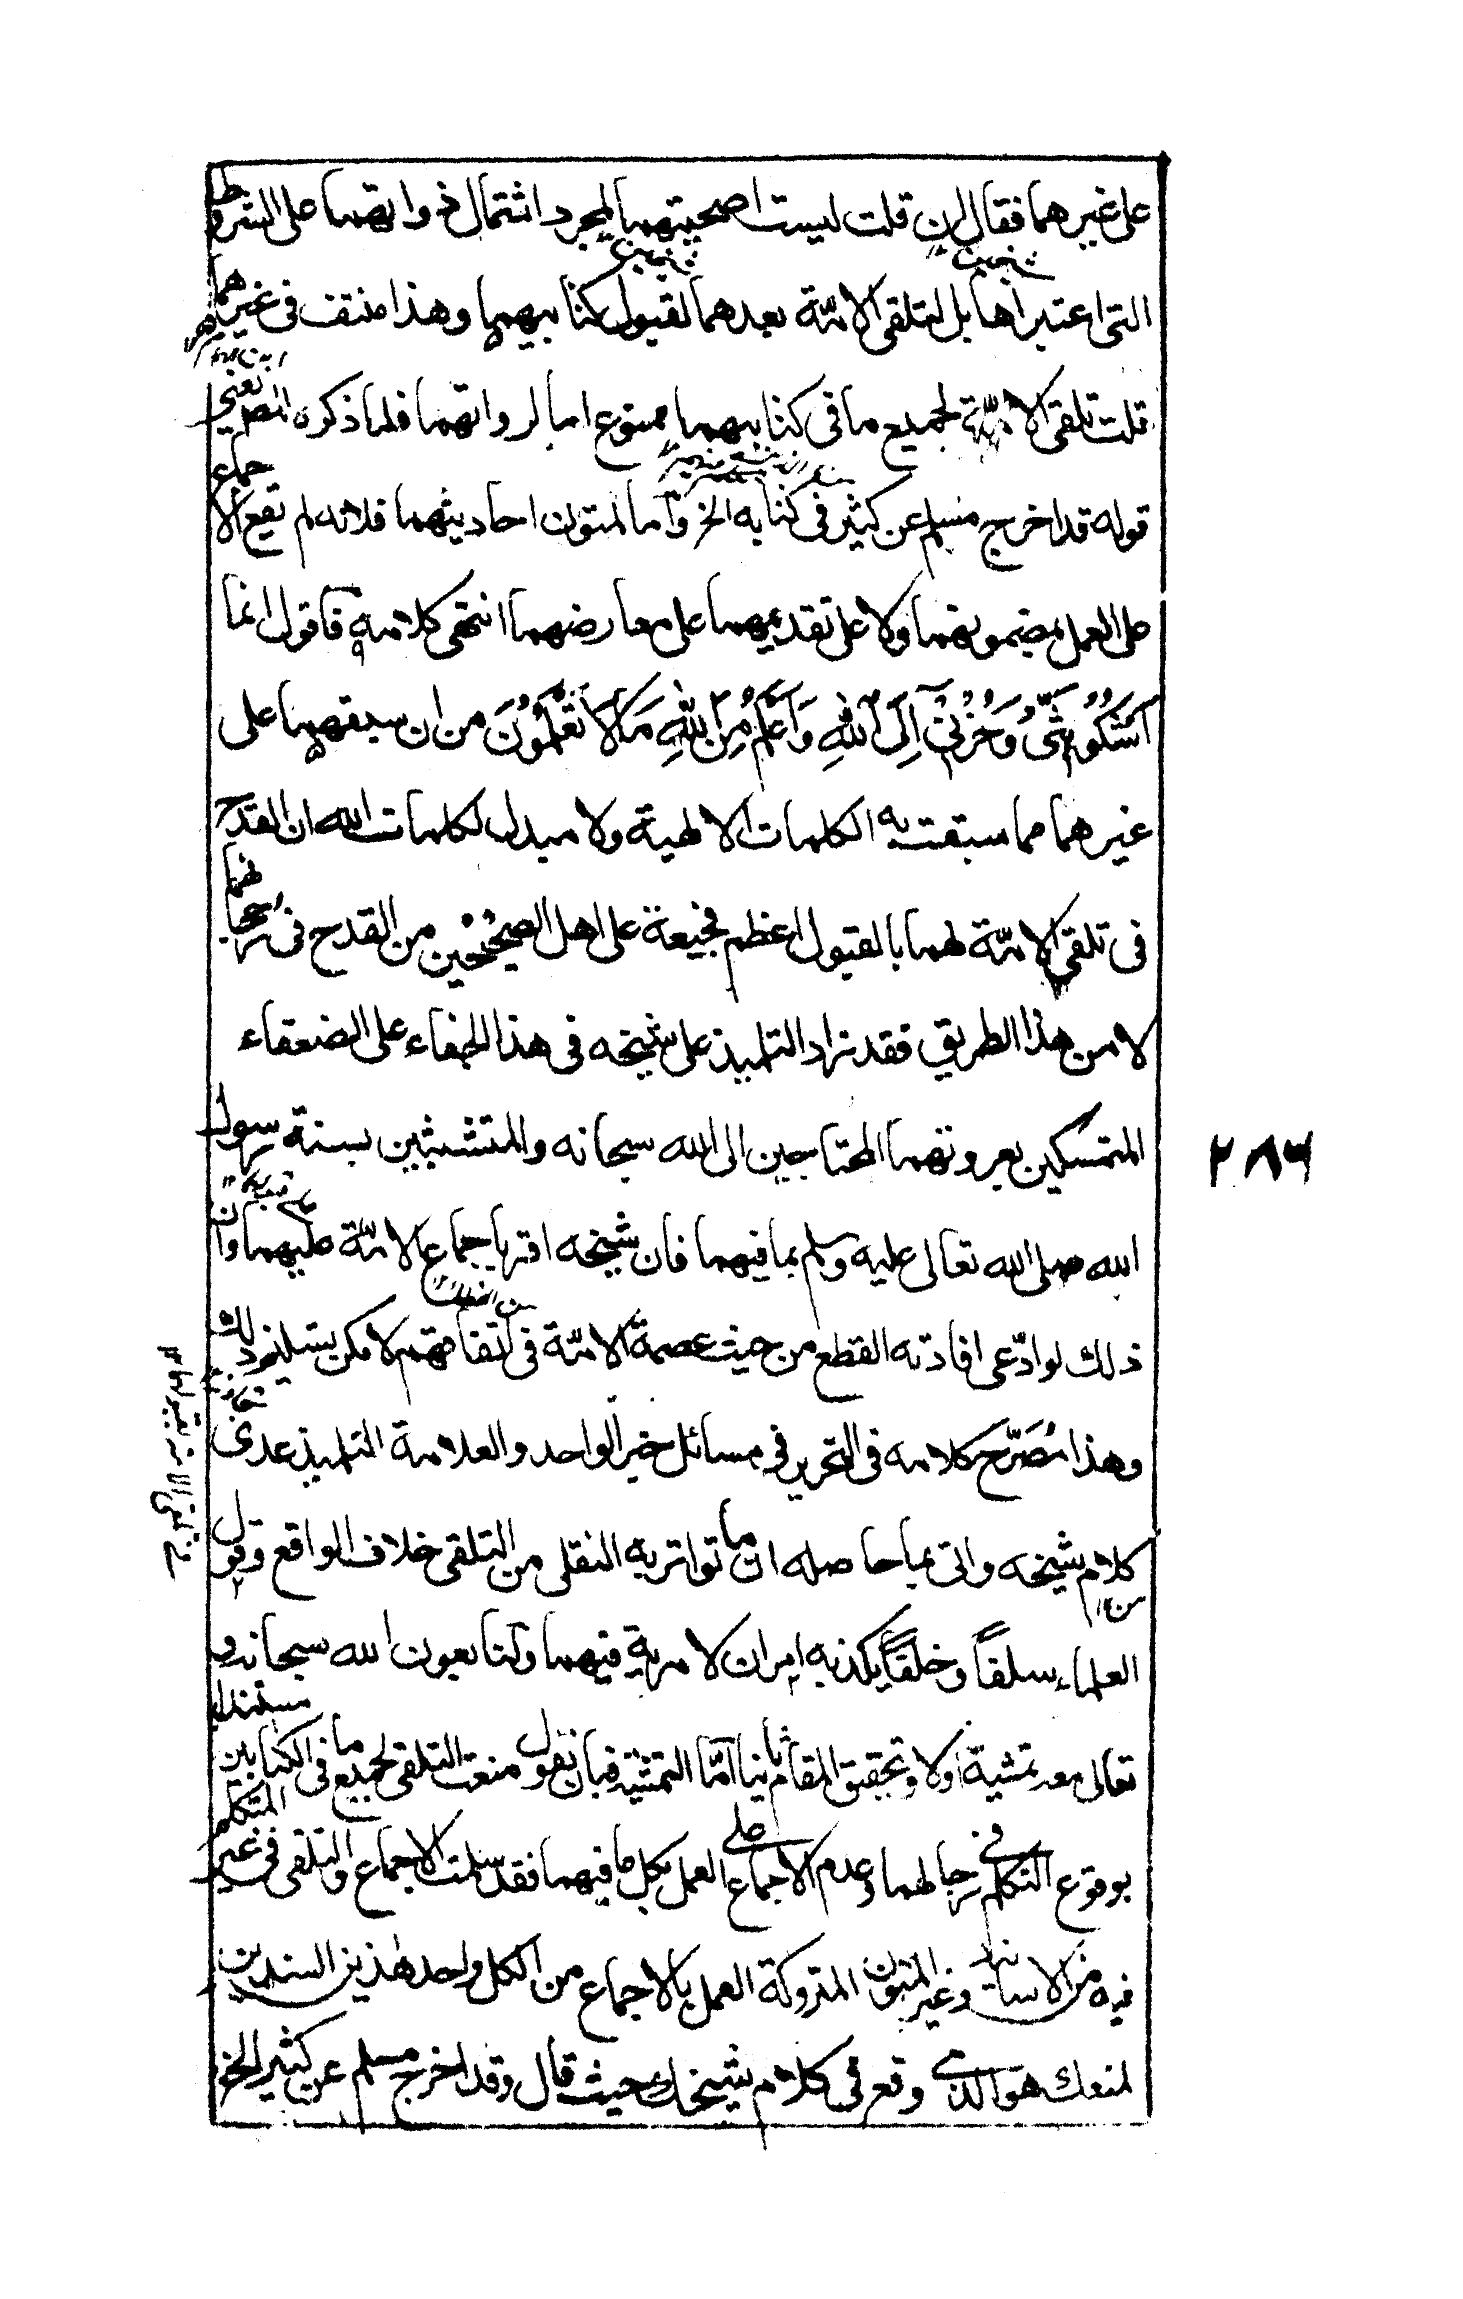 على غيرهما فقال ان قلت ليست اصحيتهما لمجرد اشتمال رواتهما على الشروط
شيخين
شيخين
التى اعتبراها بل لتلقى الامّة بعدهما لقبول كتابيهما وهذا منتف فى غيرهما
قلت تلقى الامّة لجميع ما فى كتابيهما ممنوع اما لرواتهما فلما ذكره المصنف
يعنى
قوله قد اخرج مسلم عن كثير فى كتابه الخ واما لمتون احاديثهما فلانه لم تقع الاجماع
على العمل بمضمونهما ولا على تقديمهما على معارضهما انتهى كلامه فاقول انما
اَشْكُوْ بَثِّىْ وَحُزْنِىْ اِلَى اللّٰهِ وَاَعْلَمُ مِنَ اللّٰهِ مَا لَا تَعْلَمُوْنَ من ان سبقهما على
غيرهما مما سبقت به الكلمات الالهية ولا مبدل لكلمات الله ان القدح
فى تلقى الامّة لهما بالقبول اعظم فجيعة على اهل الصحيحين من القدح فى رجالهما
لا من هذا الطريق فقد زاد التلميذ على شيخه فى هذا الجفاء على الضعفاء
المتمسكين بعروتهما المحتاجين الى الله سبحانه والمتشبثين بسنة رسول
الله صلى الله تعالى عليه وسلم بما فيهما فان شيخه اقر باجماع الامّة عليهما وان
ذلك لو ادّعى افادته القطع من حيث عصمة الامّة فى اتفاقهم لا مكن تسليم ذلك
وهذا مُصَرَّح كلامه فى التحرير فى مسائل خبر الواحد والعلامة التلميذ عدى
كلام شيخه واتى بما حاصله ان ما تواتر به النقل من التلقى خلاف الواقع وقول
العلماء سلفاً وخلفاً يكذبه امران لا مرية فيهما ولنا بعون الله سبحانه و
تعالى معه تمشية اولا وتحقيق المقام ثانيا امّا التمشية فبان نقول منعت التلقى لجميع ما فى الكتابين مستندا
بوقوع التكلم فى رجالهما وعدم الاجماع على العمل بكل ما فيهما فقد سلمت الاجماع والتلقى فى غير المتكلم
فيه من الاسانيد وغير المتون المتروكة العمل بالاجماع من الكل واحد هذين السندين
لمنعك هو الذى وقع فى كلام شيخك حيث قال وقد اخرج مسلم عن كثير الخ
٢٨٦